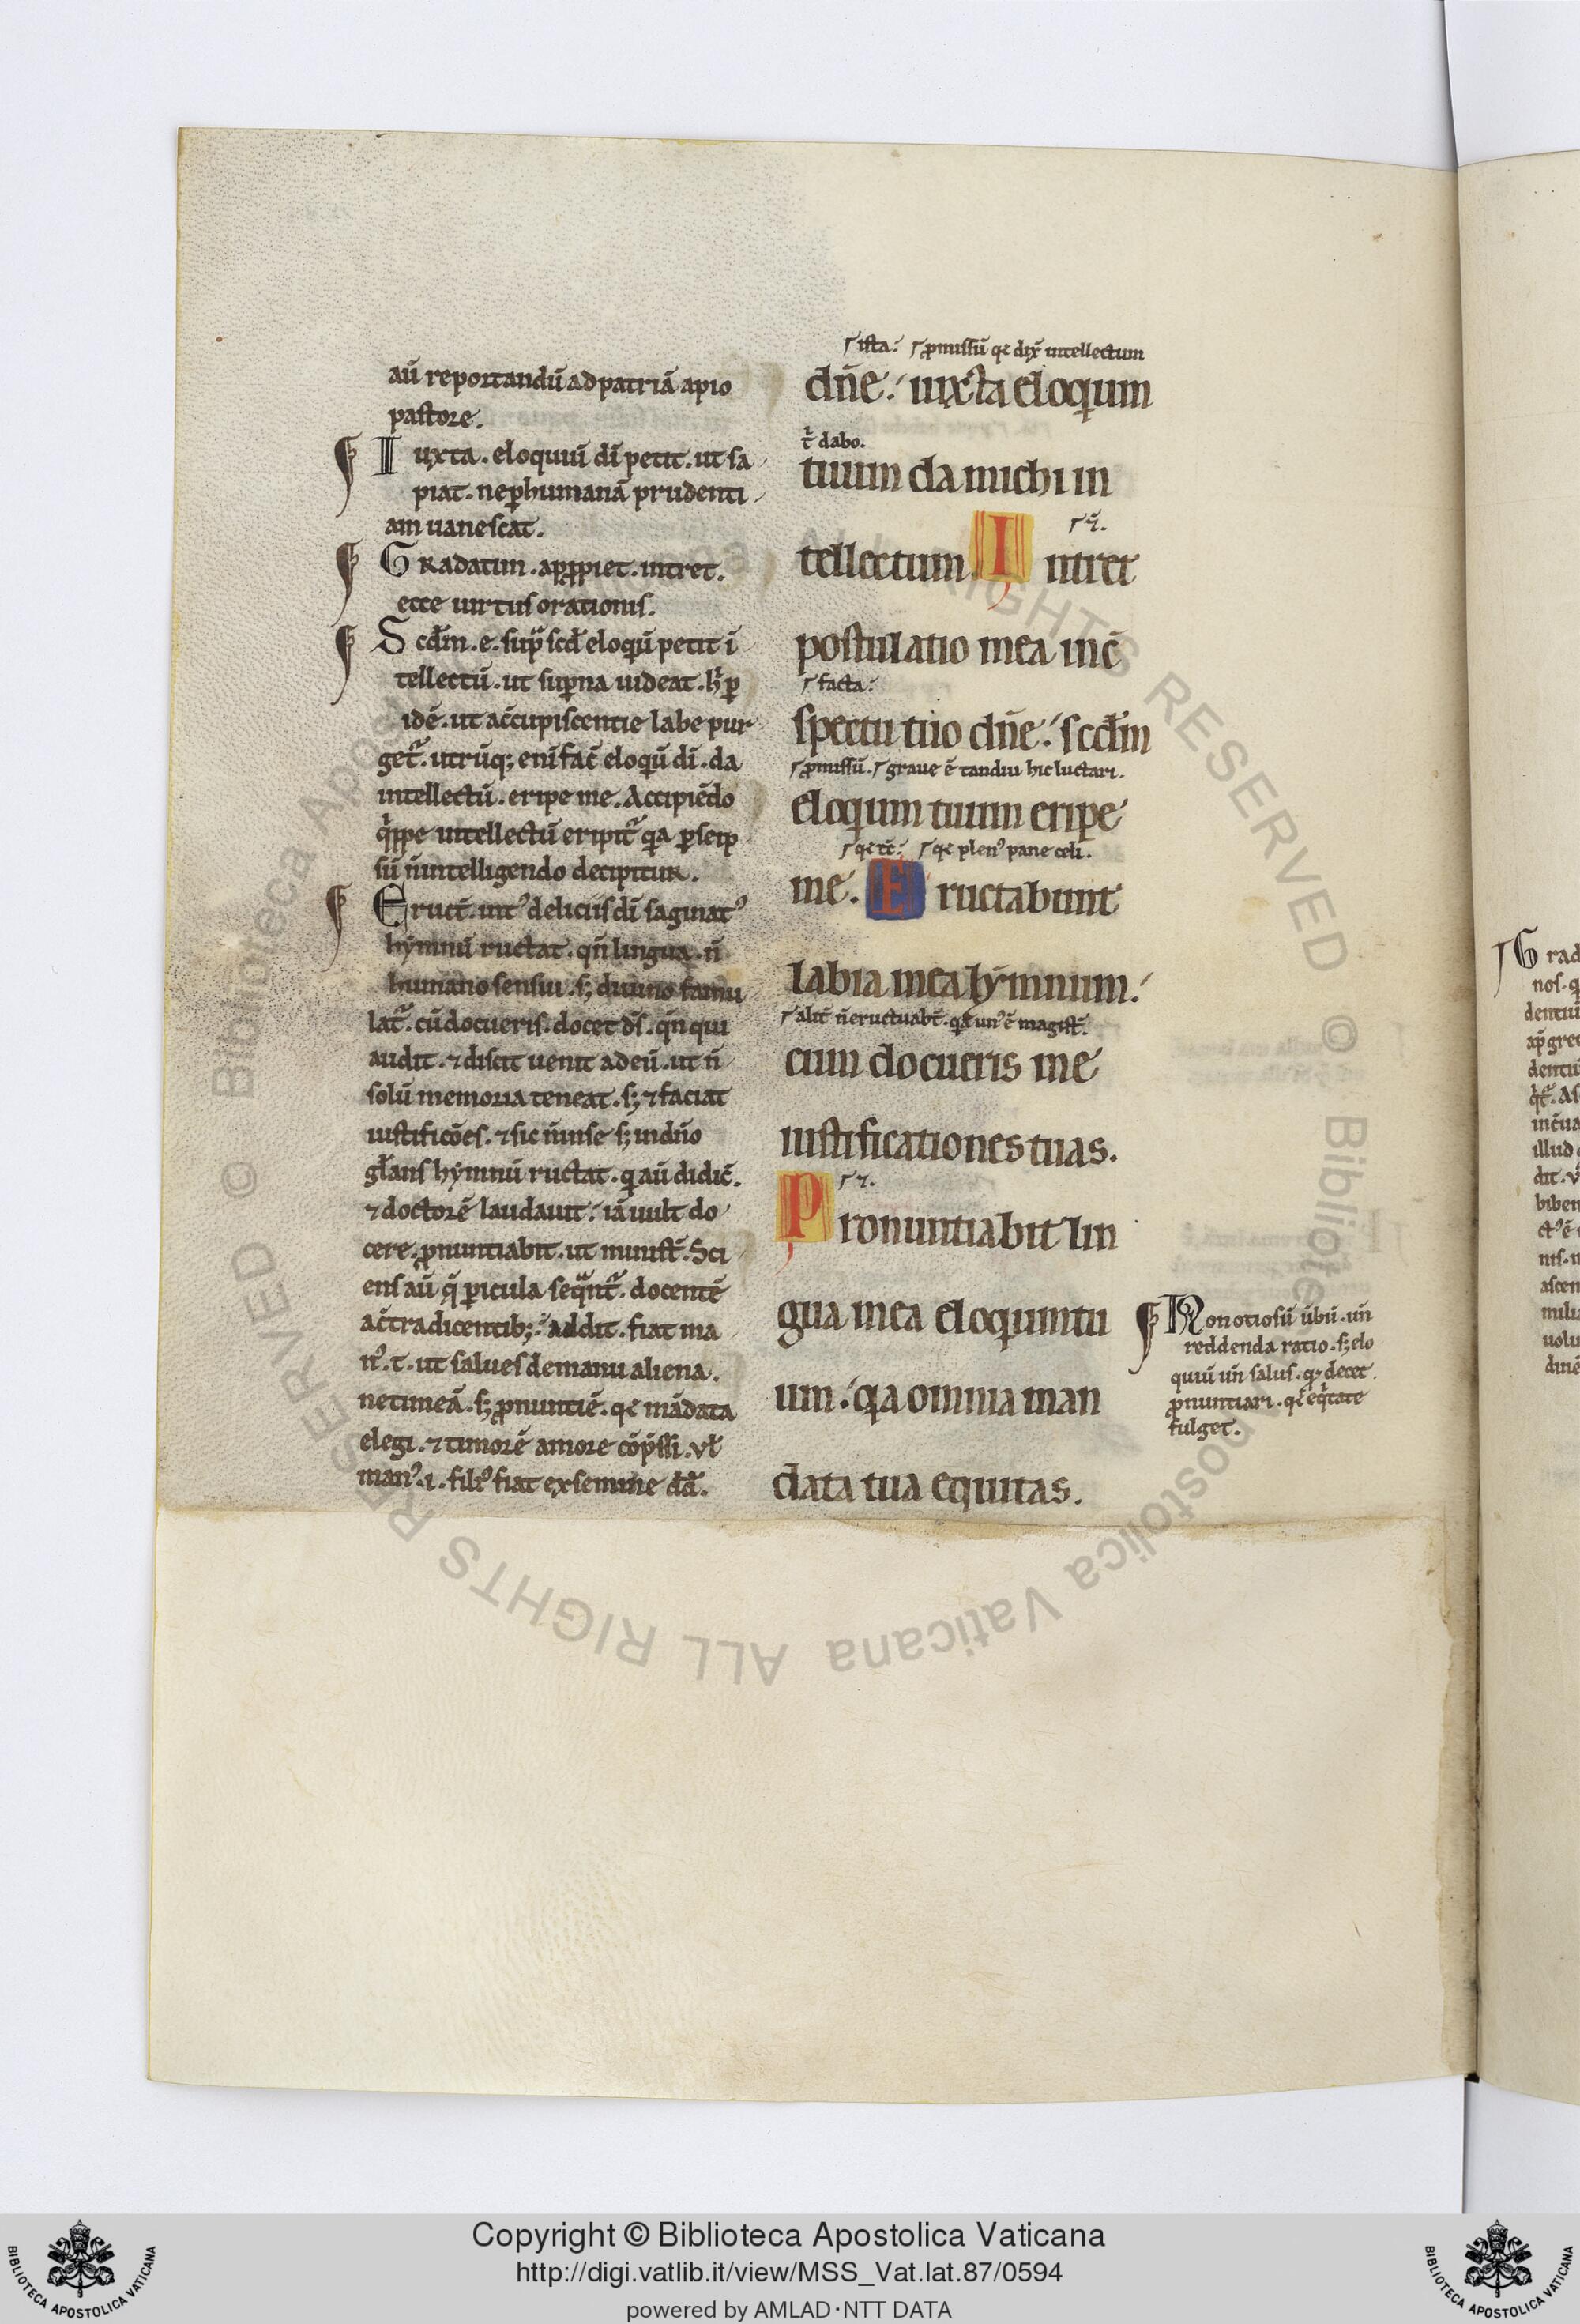 aū reportandū ad patriā a pio
pastore.
Iuxta. eloquiū dī petit. ut sa
piat. ne ꝑ humanā prudenti
am uanescat.
Gradatim. apꝓpiet. intret.
ecce uirtus orationis.
Scd̄m. e. supͣ scd̄ eloqū petit ī
tellectū. ut suꝑna uideat.
idē. ut a c̄cupiscentie labe pur
get᷑. utrūq; eni fac̄ eloqū dī. da
intellectū. eripe me. Accipiēdo
qͥppe intellectū eripit᷑ qͣa ꝑ seip
sū n̄ intelligendo decipitur.
Eruct̄. int᷒ deliciis dī saginat᷒
hẏmnū ructat. qn̄ lingua. n̄
humano sensui. s; diuino famu
lat᷑. cū docueris. docet ds̄. qn̄ qui
audit. ⁊ discit uenit ad eū. ut n̄
solū memoria teneat. s; ⁊ faciat
iustificōes. ⁊ sic n̄ in se s; in dn̄o
gl̄ans hẏmnū ructat. q aū didic̄.
⁊ doctorē laudauit. iā uult do
cere. ꝓnuntiabit. ut minist̄. Sci
ens aū q̄ ꝑicula seqͣnt᷑. docentē
a c̄tradicentib; addit. fiat ma
n᷒. t. ut salues de manu aliena.
ne timeā. s; ꝓnuntiē. qe mādata
elegi. ⁊ timorē amore cōp̄ssi. Vl̄
man᷒. i. fili᷒ fiat ex semine dd̄.
ista. ꝓmissū qe dix̄ intellectum
dn̄e. iuxta eloqium
t᷑ dabo.
tuum da michi in
tellectum. Intret
postulatio mea in c̄
facta.
spectu tuo dn̄e. scd̄m
ꝓmissū. graue ē tandiu hic luctari.
eloqium tuum eripe
qe plen᷒ pane celi.
me. Eructabunt
labia mea hẏmnum.
alit̄ n̄ eructuabt̄. qͣa un᷒ ē magist̄.
cum docueris me
iustificationes tuas.
Pronuntiabit lin
gua mea eloquium tu
um. qͣa omnia man
data tua equitas.
Non otiosū ūbū. un̄
reddenda ratio. s; elo
quiū un̄ salus. qd decet
ꝓnuntiari. qe eqͥtate
fulget.
Grad
nos. q
dentiū
dentiū
illud
dit.
biben
ascen
milia
uolu
Copyright © Biblioteca Apostolica Vaticana
http://digi.vatlib.it/view/MSS_Vat.lat.87/0594
powered by AMLAD·NTT DATA
BIBLIOTECA APOSTOLICA VATICANA
BIBLIOTECA APOSTOLICA VATICANA